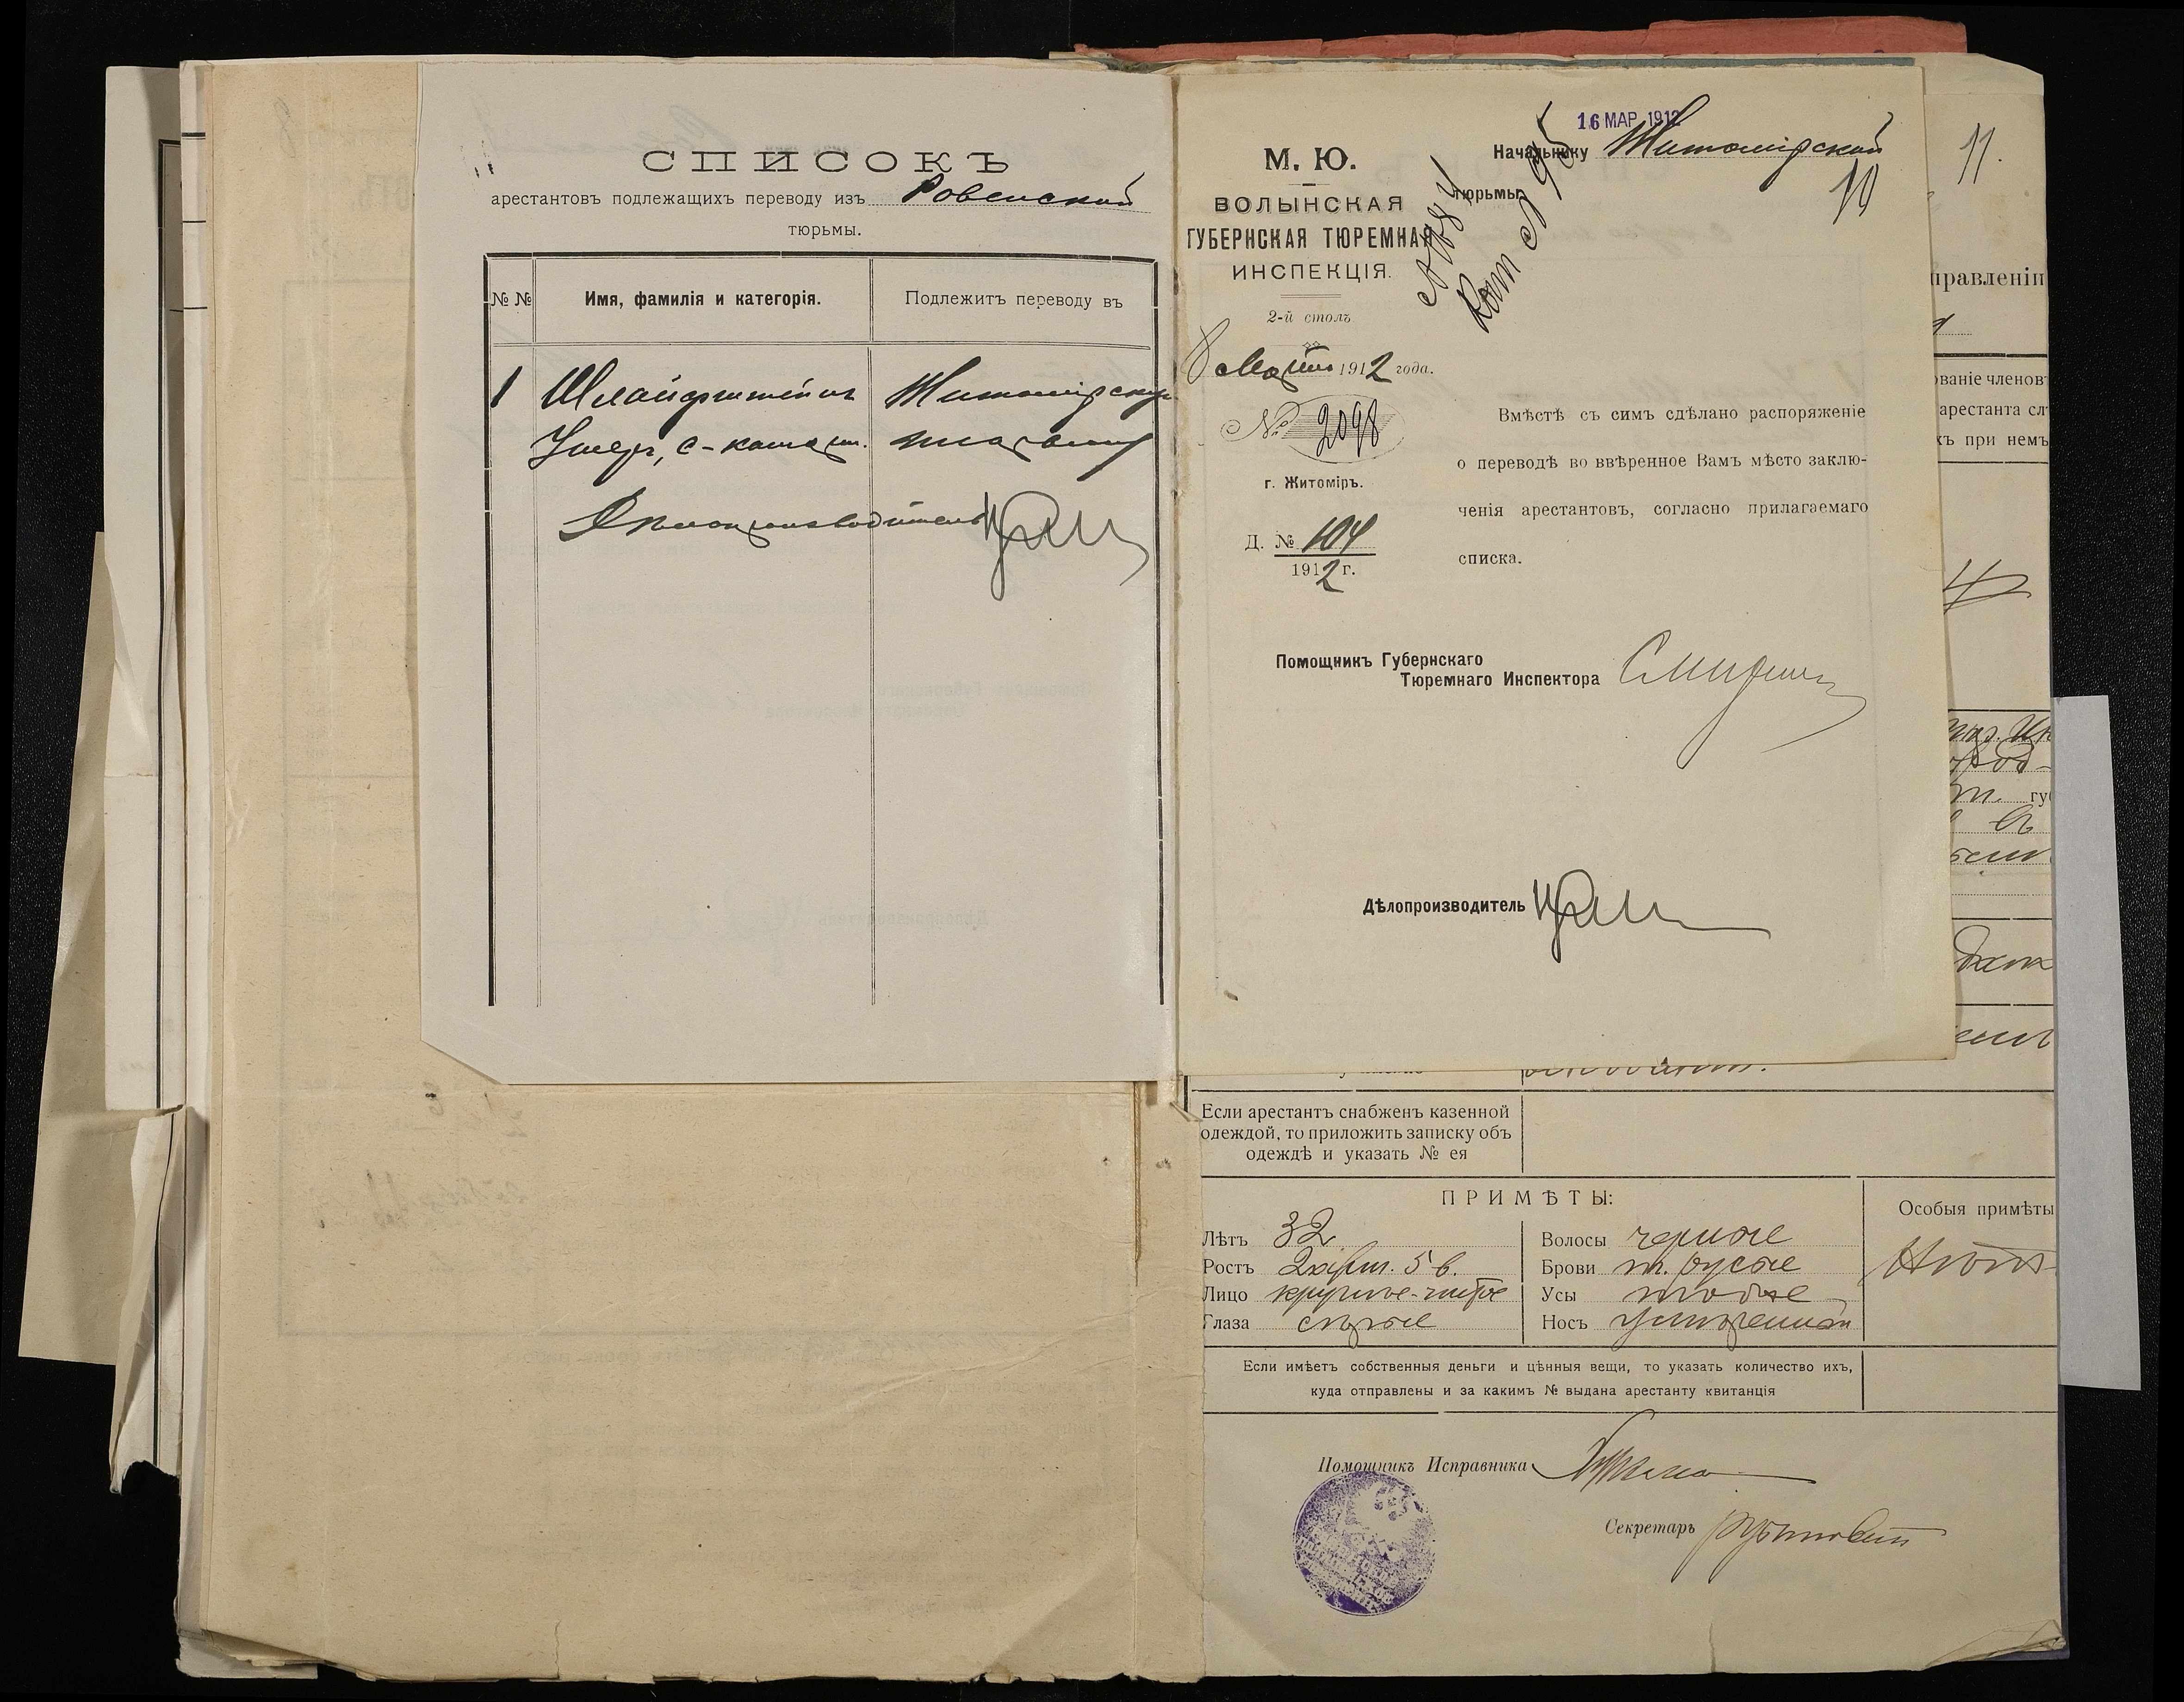 СПИСОКЪ
арестантовъ подлежащихъ переводу изъ Ровенской
тюрьмы.
№ № Имя, фамилія и категорія. Подлежитъ переводу въ
1 Шлайфштейнъ Житомірскую
Ушеръ, с-катор. тюрьму
Дѣлопроизводитель
16 МАР. 1912
Начальнику Житомірской
тюрьмы
10
М. Ю.
ВОЛЫНСКАЯ
ГУБЕРНСКАЯ ТЮРЕМНАЯ
ИНСПЕКЦІЯ.
2-й столъ
8 Марта 1912 года.
№ 2098
г. Житоміръ.
Д. № 104
1912 г.
Вмѣстѣ съ симъ сдѣлано распоряженіе
о переводѣ во ввѣренное Вамъ мѣсто заклю-
ченія арестантовъ, согласно прилагаемаго
списка.
Помощникъ Губернскаго
Тюремнаго Инспектора
Дѣлопроизводитель
11.
правленіи
ованіе членов
арестанта сл
хъ при немъ
гу
Если арестантъ снабженъ казенной
одеждой, то приложить записку объ
одеждѣ и указать № ея
ПРИМѢТЫ:
Особыя примѣты
Лѣтъ 32 Волосы черные
Ростъ 2 арш. 5 в. Брови т. русые
Лицо круглое-чистое Усы тоже
Глаза сѣрые Носъ умѣренный
Нѣтъ
Если имѣетъ собственныя деньги и цѣнныя вещи, то указать количество ихъ,
куда отправлены и за какимъ № выдана арестанту квитанція
Помощникъ Исправника
Секретарь